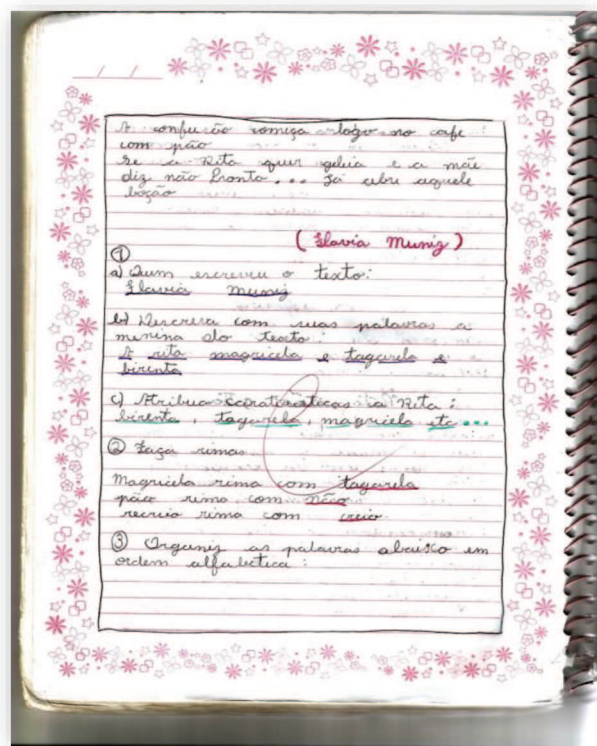 A confusão começa logo no cafe
com pão
Se a Rita quer geleia e a mãe
diz não Pronto... Já abre aquele
bocão
(Flavia Muniz)
①
a) Quem escreveu o texto:
Flavia Muniz
b) Descreva com suas palavras a
menina do texto:
A rita magricela e tagarela e
birenta
c) Atribua caracteristicas a Rita:
birenta, tagarela, magricela etc...
② Faça rimas.
Magricela rima com tagarela
pão rima com não
recreio rima com creio
③ Organiz as palavras abaixo em
ordem alfabetica: